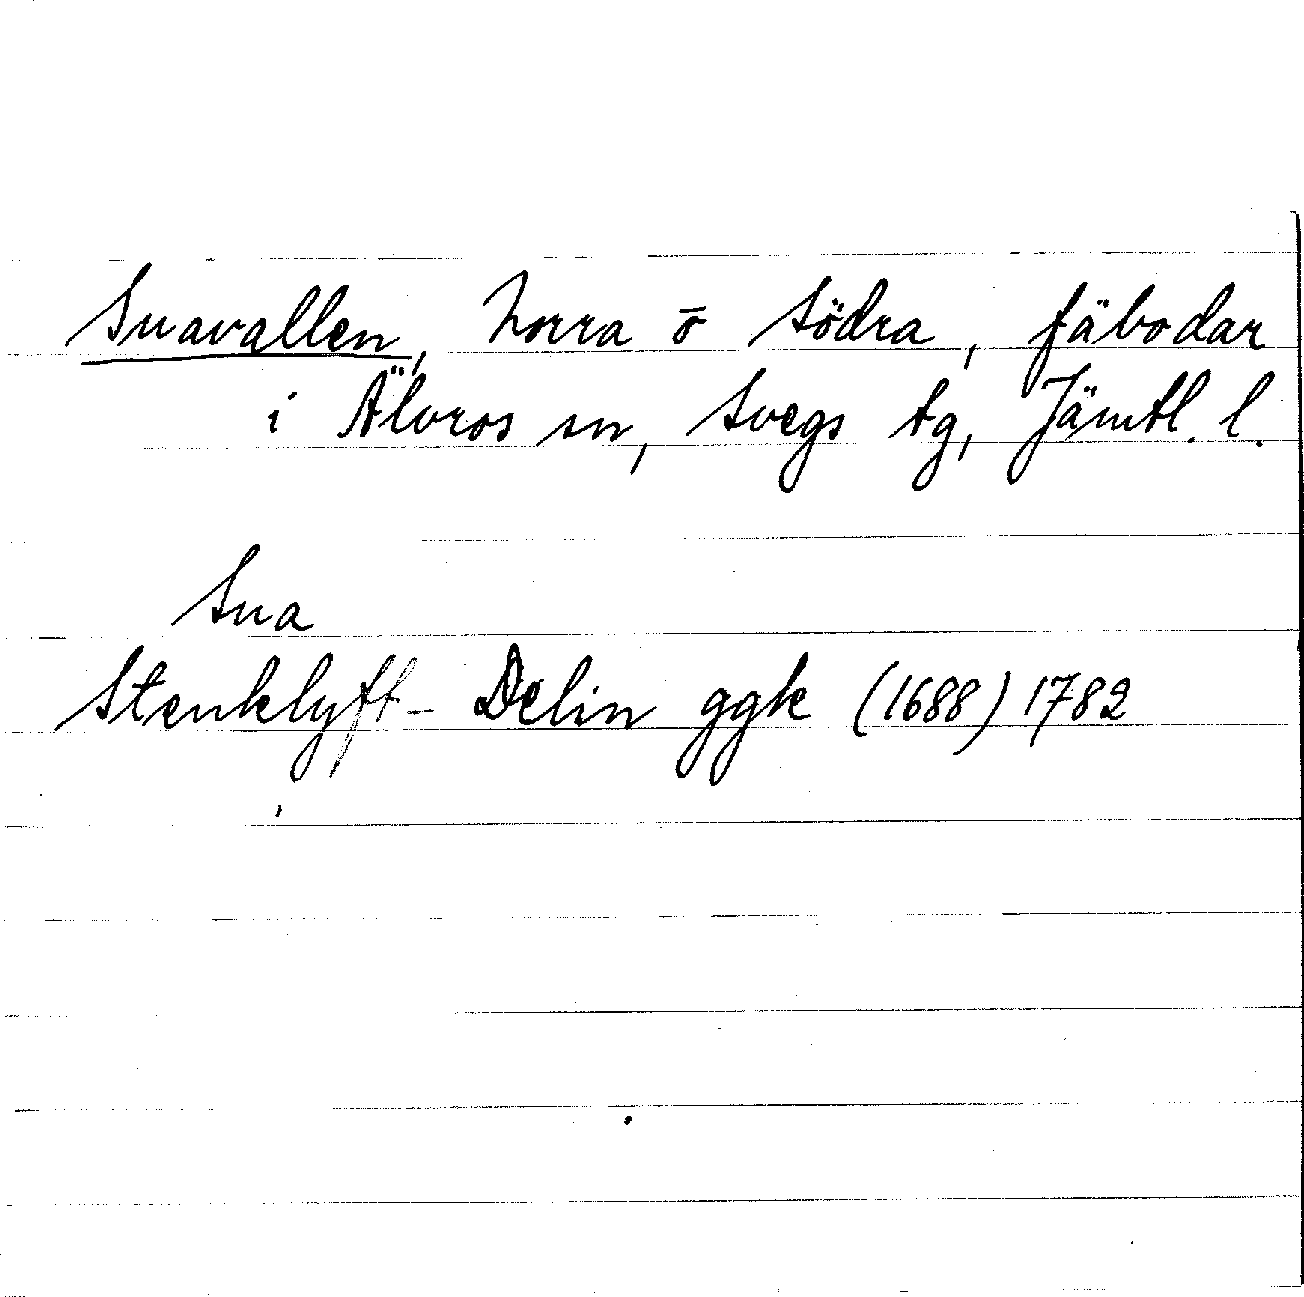 Snavallen, Norra o södra, fäbodar
i Älvros sn, Svegs tg, Jämtl. l.
Sna
Stenklyft- Delin ggk (1688) 1782